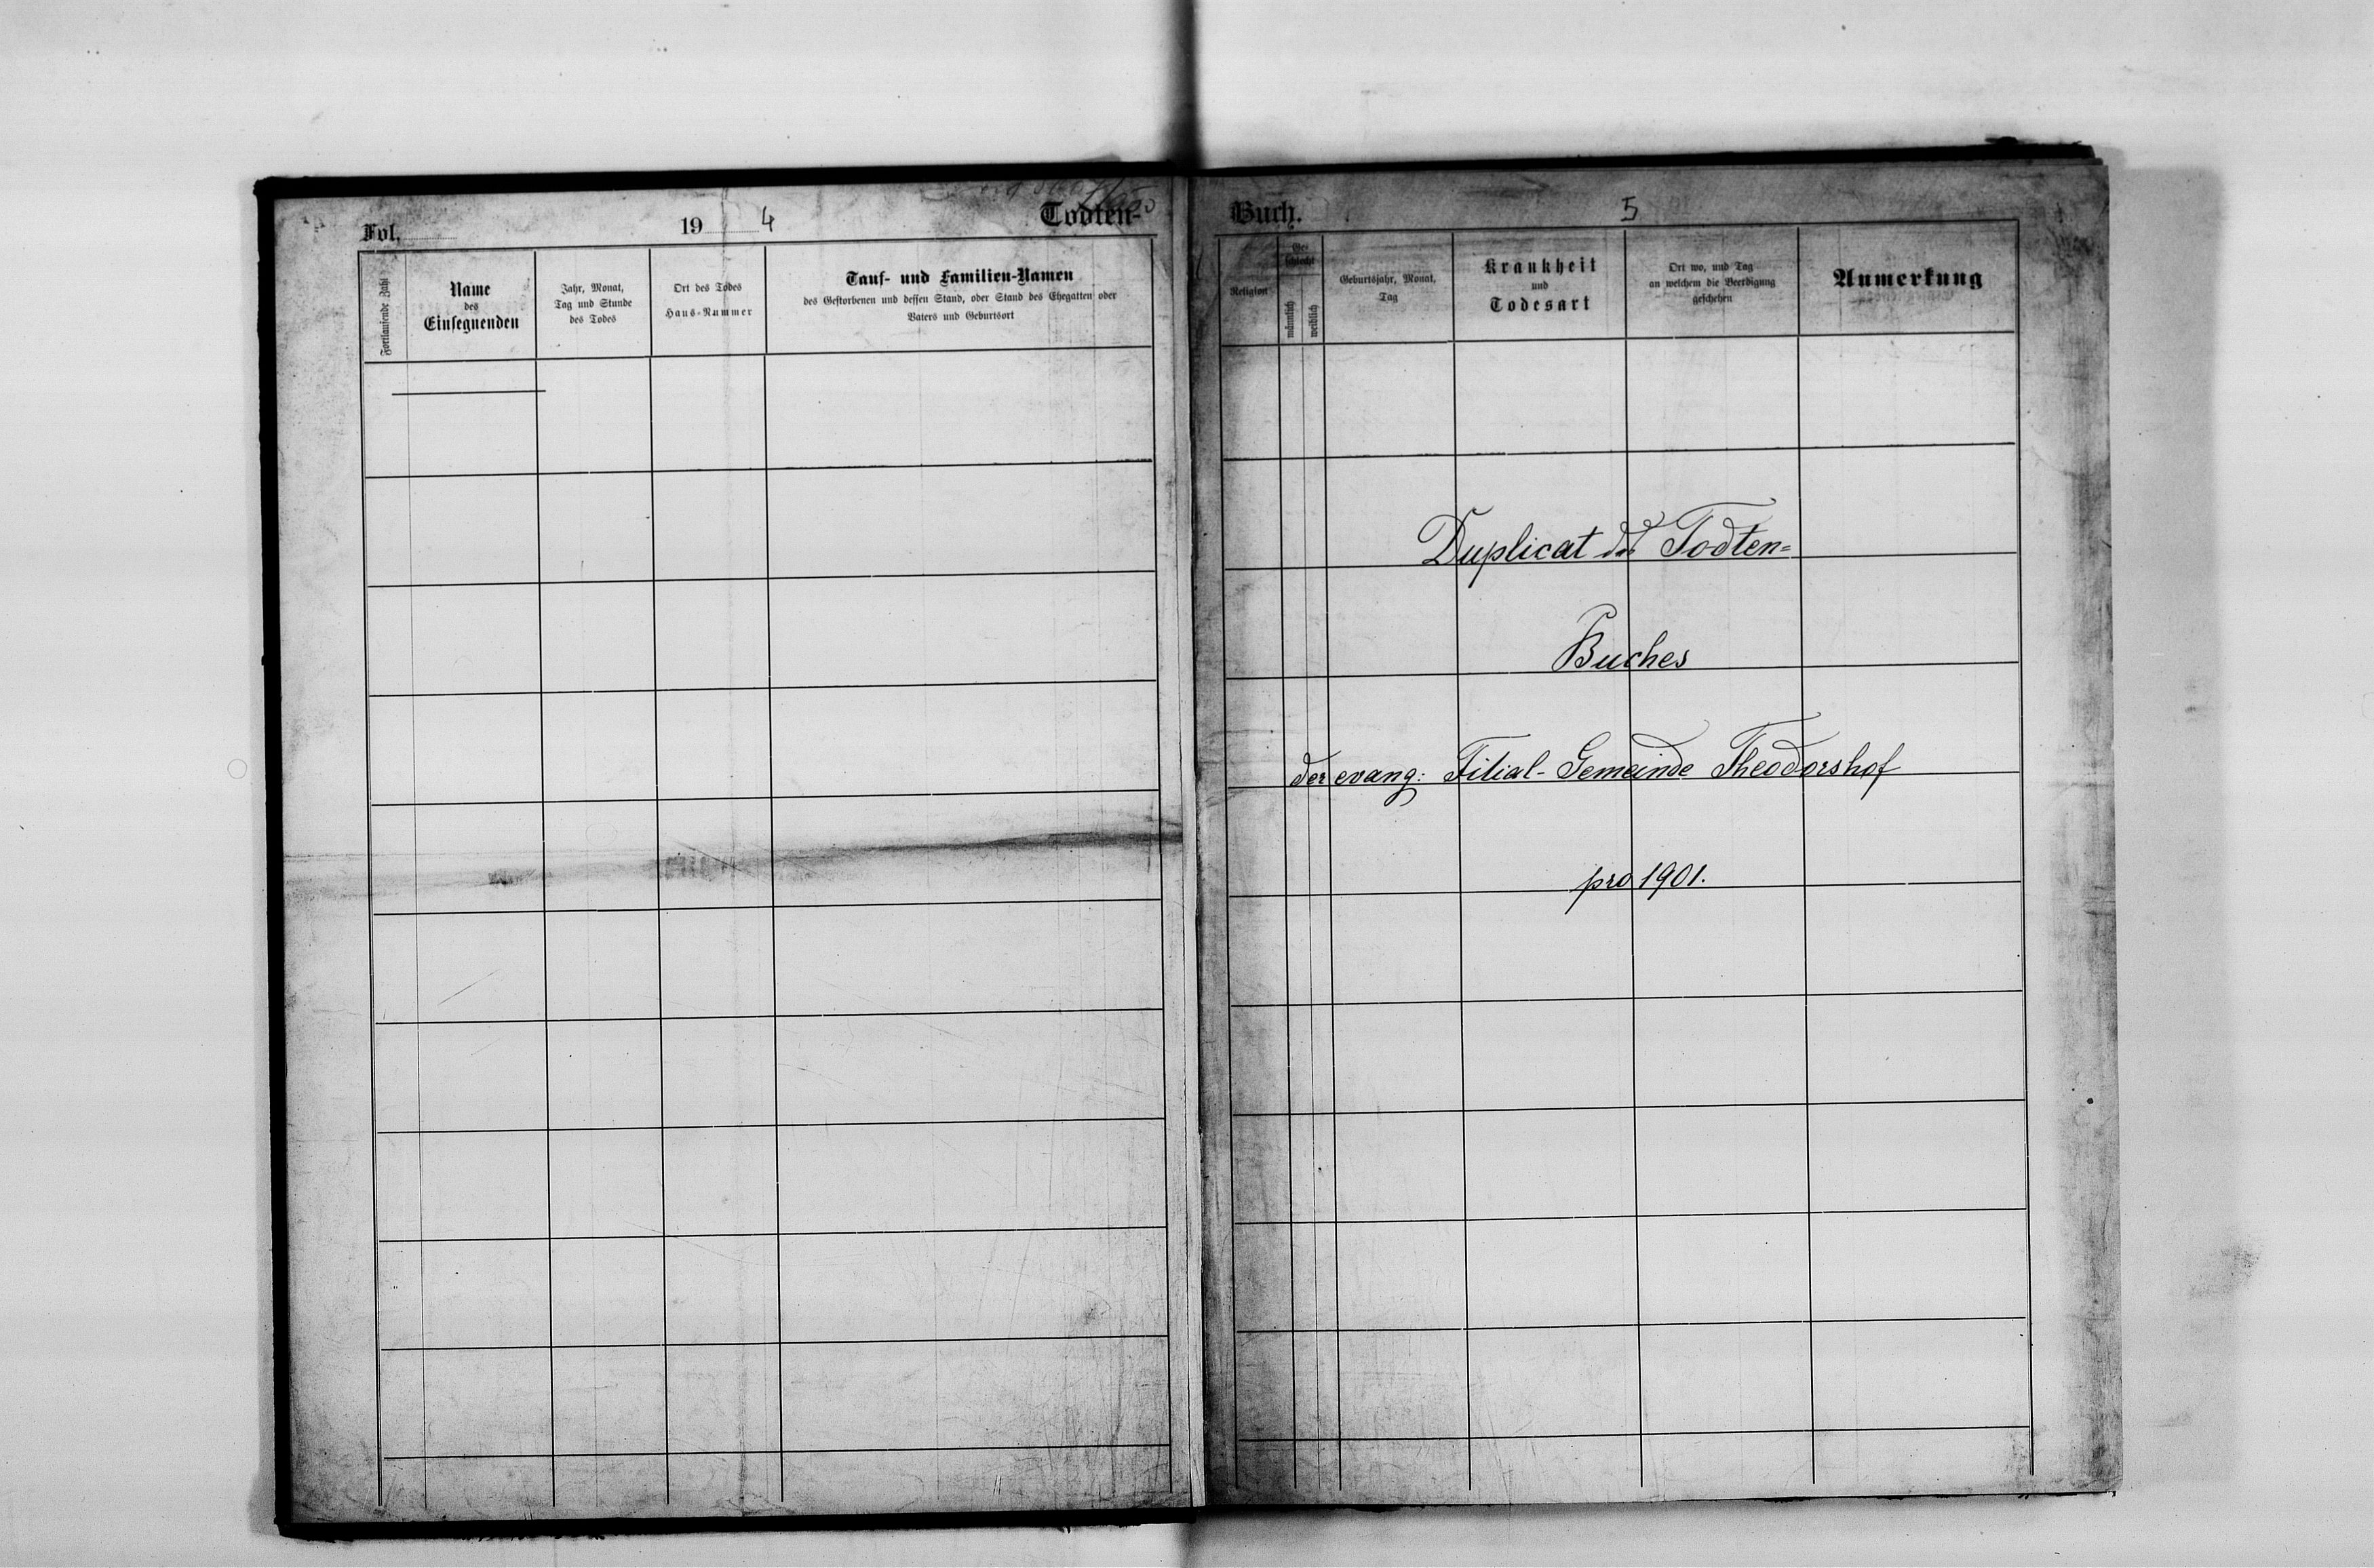 Fol. 19 4 Todten-
Fortlaufende Zahl
Name
des
Einsegnenden
Jahr, Monat,
Tag und Stunde
des Todes
Ort des Todes
Haus-Nummer
Tauf- und Familien-Namen
des Gestorbenen und dessen Stand, oder Stand des Ehegatten oder
Vaters und Geburtsort
Buch. 5
Religion
Ge-
schlecht
männlich
weiblich
Geburtsjahr, Monat,
Tag
Krankheit
und
Todesart
Ort wo, und Tag
an welchem die Beerdigung
geschehen
Anmerkung
Duplicat des Todten=
Buches
der evang: Filial-Gemeinde Theodorshof
pro 1901.